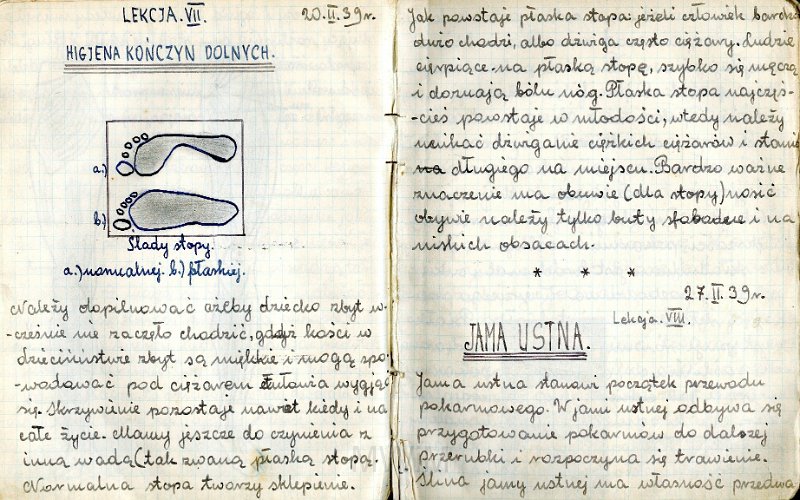 LEKCJA.VII. 20.II.39r.
HIGJENA KOŃCZYN DOLNYCH.
a.)
b.)
Ślady stopy.
a.) normalnej. b.) płaskiej.
Należy dopilnować ażeby dziecko zbyt w-
-cześnie nie zaczęło chodzić, gdyż kości w
dzieciństwie zbyt są miękkie i mogą spo-
-wodować pod ciężarem tułowia wygiąć
się. Skrzywienie pozostaje nawet kiedy i na
całe życie. Mamy jeszcze do czynienia z
inną wadą (tak zwaną płaską stopą.
Normalna stopa tworzy sklepienie.
Jak powstaje płaska stopa: jeżeli człowiek bardzo
dużo chodzi, albo dźwiga często ciężary. Ludzie
cierpiące na płaską stopę, szybko się męczą
i doznają bólu nóg. Płaska stopa najczęś-
-ciej powstaje w młodości, wtedy należy
unikać dźwiganie ciężkich ciężarów i stania
na długiego na miejscu. Bardzo ważne
znaczenie ma obuwie (dla stopy) nosić
obywie należy tylko buty słobodne i na
niskich obsacach.
* * *
27.II.39r.
Lekcja.VIII.
JAMA USTNA.
Jama ustna stanowi początek przewodu
pokarmowego. W jamie ustnej odbywa się
przygotowanie pokarmów do dalszej
przerubki i rozpoczyna się trawienie.
Ślina jamy ustnej ma własność przedwa